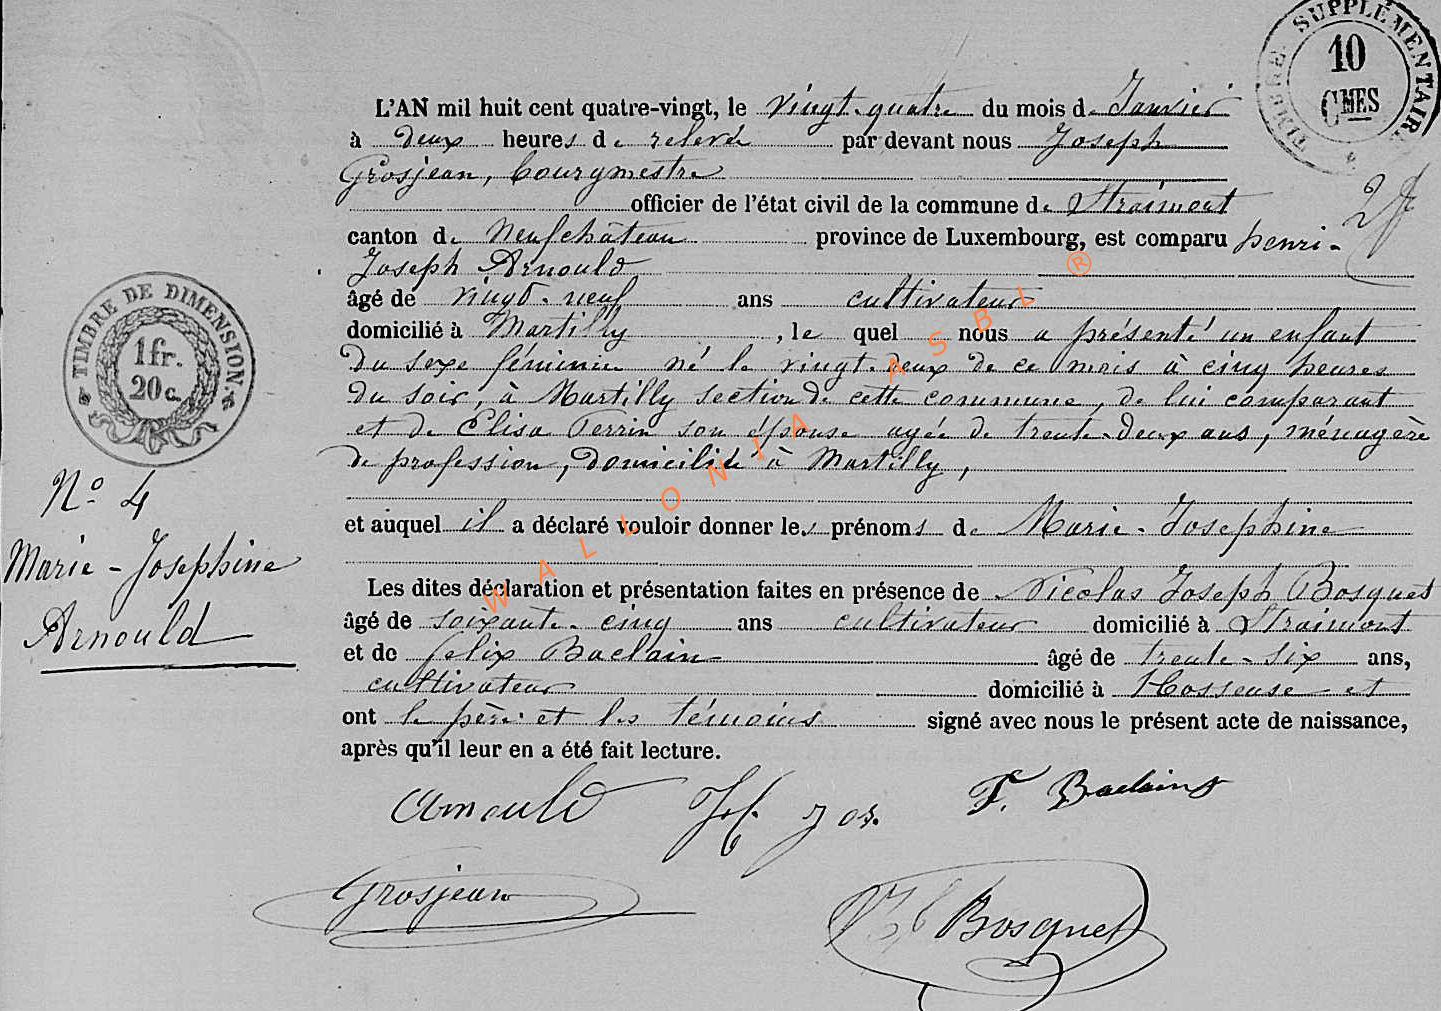 TIMBRE SUPPLÉMENTAIRE
10
CMES
L'AN mil huit cent quatre-vingt, le vingt-quatre du mois de Janvier
à deux heures de relevée par devant nous Joseph
Grosjean, bourgmestre
officier de l'état civil de la commune de Straimont
canton de Neufchâteau province de Luxembourg, est comparu henri-
Joseph Arnould
âgé de vingt-neuf ans cultivateur
domicilié à Martilly, le quel nous a présenté un enfant
du sexe féminin né le vingt-deux de ce mois à cinq heures
du soir, à Martilly section de cette commune, de lui comparant
et de Elisa Perrin son épouse agée de trente-deux ans, ménagère
de profession, domicilié à Martilly,
et auquel il a déclaré vouloir donner les prénoms de Marie-Josephine
Les dites déclaration et présentation faites en présence de Nicolas Joseph Bosquet
âgé de soixante-cinq ans cultivateur domicilié à Straimont
et de felix Baclain âgé de trente-six ans,
cultivateur domicilié à Hosseuse et
ont le père et les témoins signé avec nous le présent acte de naissance,
après qu'il leur en a été fait lecture.
TIMBRE DE DIMENSION
1 fr.
20 c.
No 4
Marie-Josephine
Arnould
Arnould
F. Baclain
Grosjean
Bosquet
WALLONIA ASBL ®